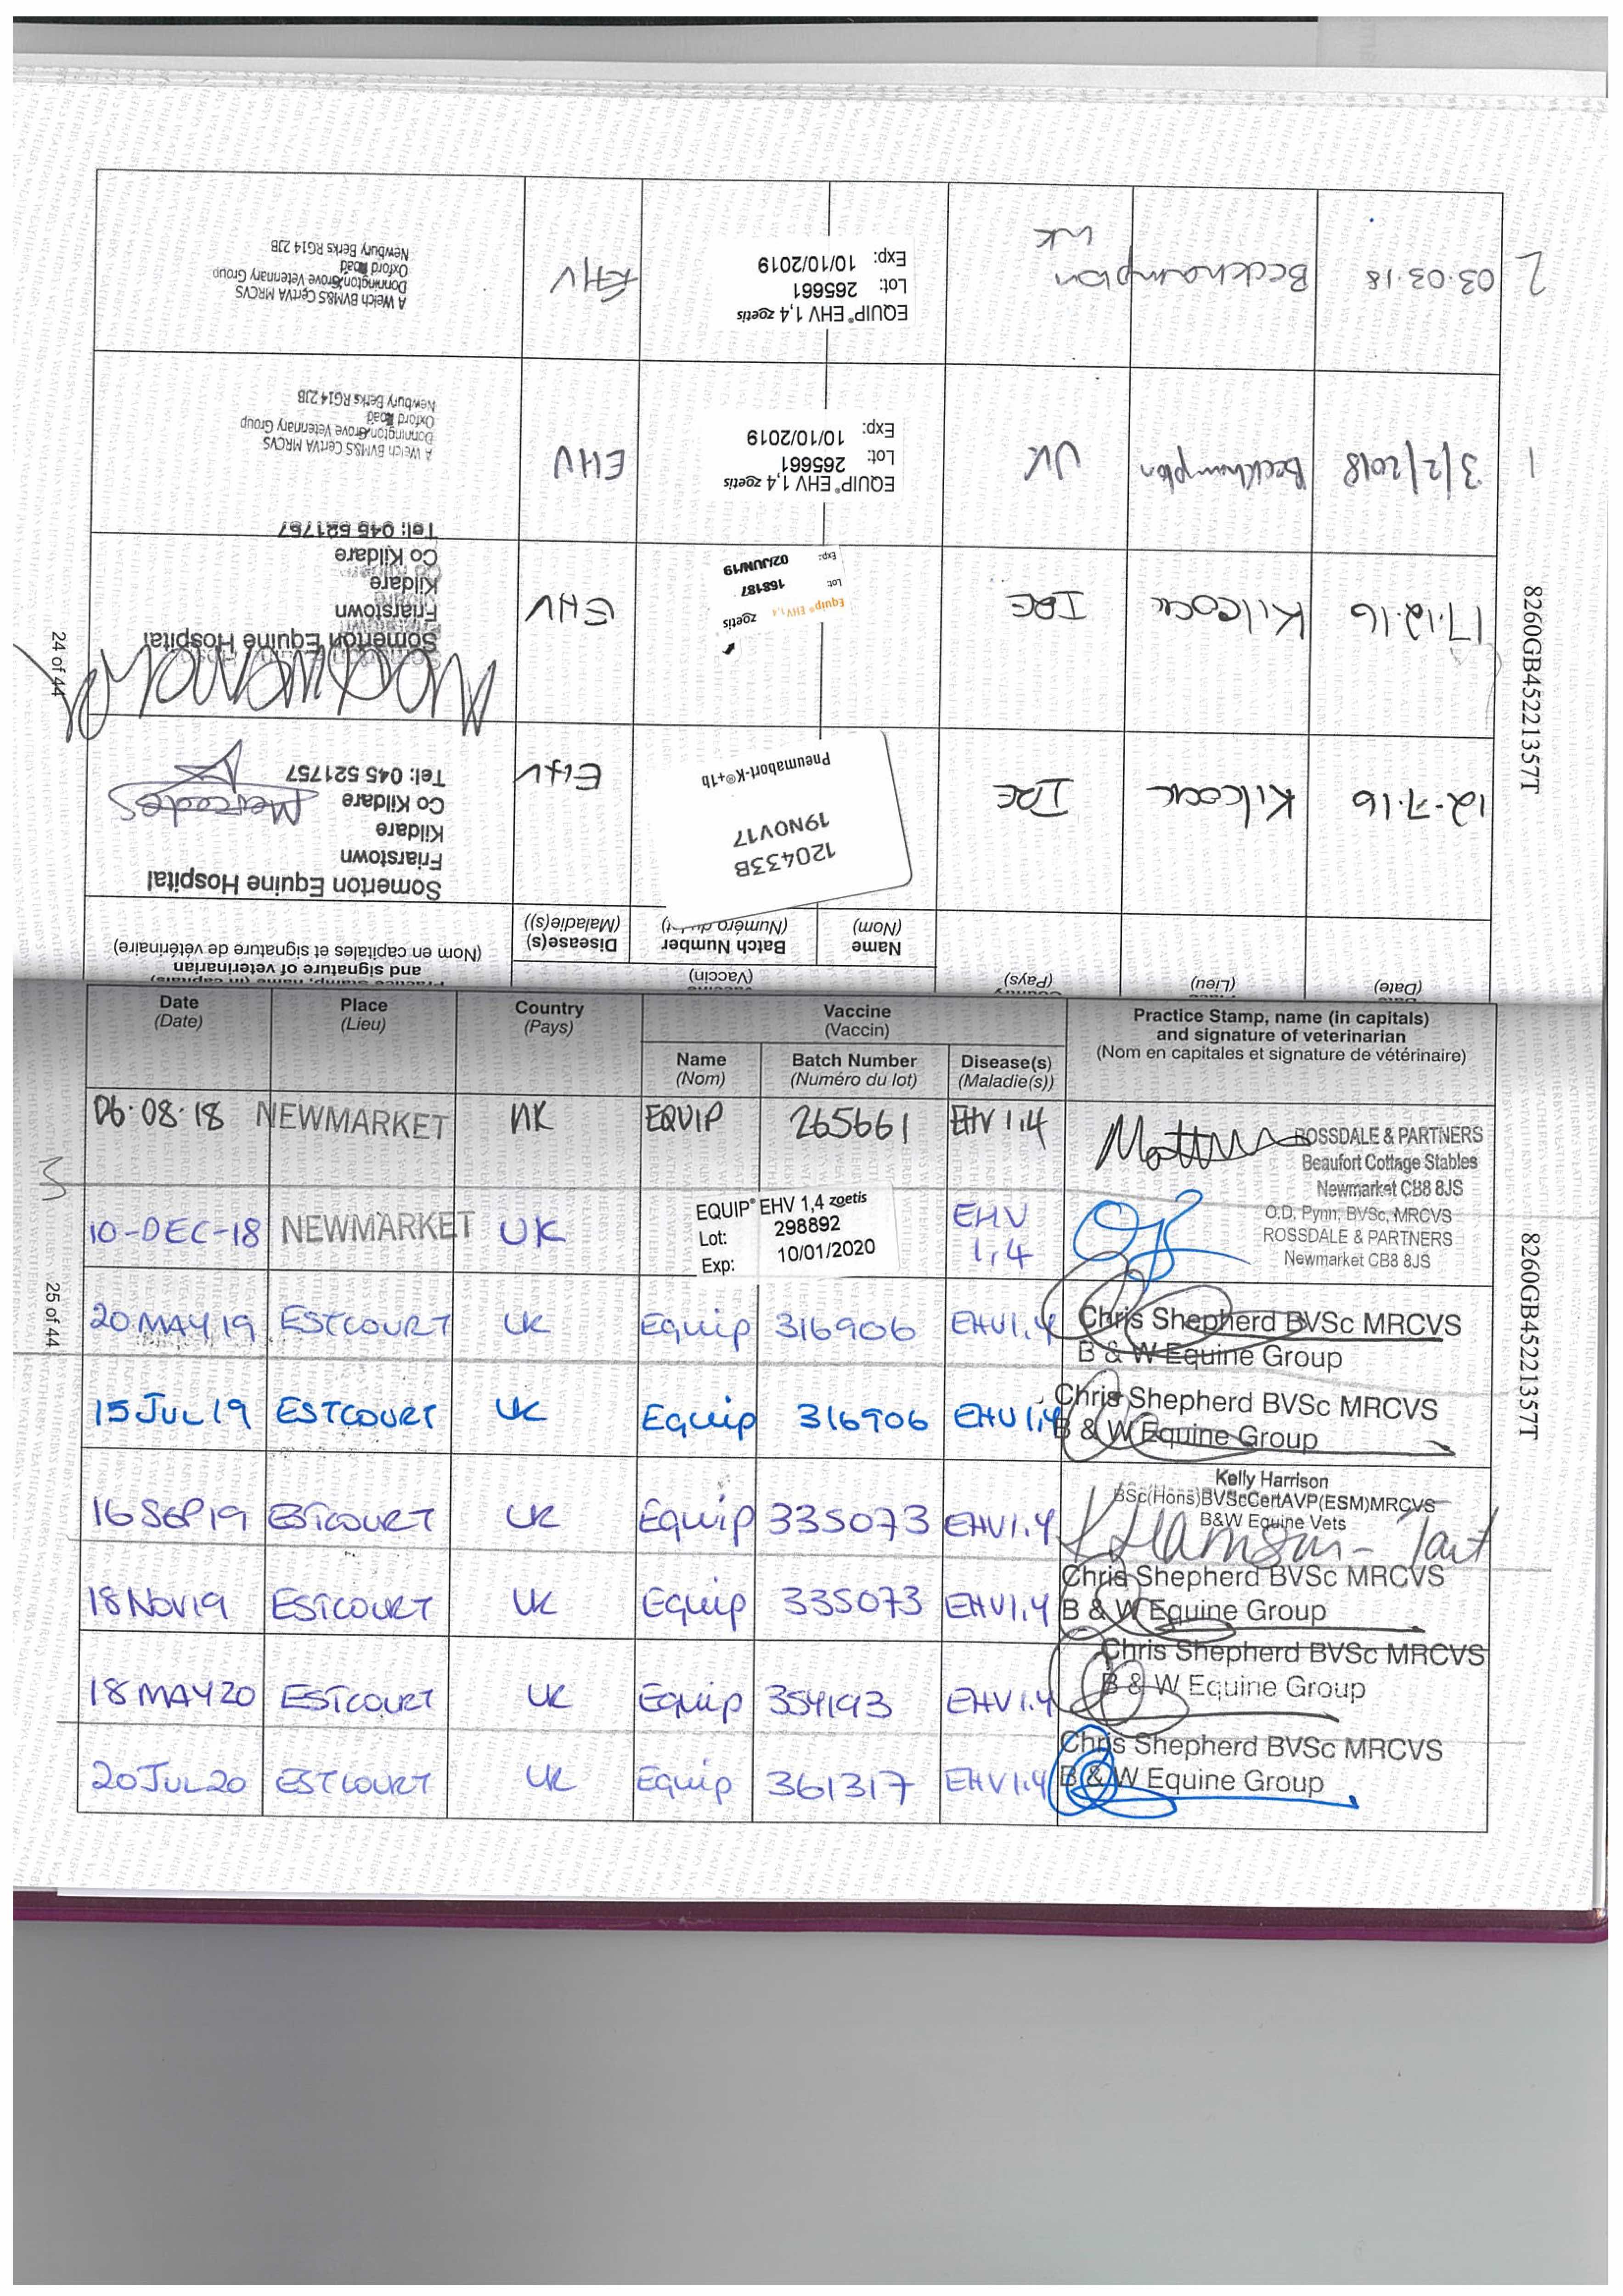 24 of 44
8260GB45221357T
Date
(Date)
(Lieu)
Country
(Pays)
Vaccine
(Vaccin)
Name
(Nom)
Batch Number
(Numéro du lot)
Disease(s)
(Maladie(s))
Practice Stamp, name (in capitals)
and signature of veterinarian
(Nom en capitales et signature de vétérinaire)
12-7.16 Kilcock IRE
120433B
19NOV17
Pneumabort-K®+1b
EHV
Somerton Equine Hospital
Friarstown
Kildare
Co Kildare
Tel: 045 521757
Mercedes
17.12.16 Kilcock IRE
Equip® EHV 1,4 zoetis
Lot: 168187
Exp: 02/JUN/19
EHV
Somerton Equine Hospital
Friarstown
Kildare
Co Kildare
Tel: 045 521757
1 3/2/2018 Beckhampton UK
EQUIP® EHV 1,4 zoetis
Lot: 265661
Exp: 10/10/2019
EHV
A Welch BVM&S CertVA MRCVS
Donnington Grove Veterinary Group
Oxford Road
Newbury Berks RG14 2JB
2 03.03.18 Beckhampton UK
EQUIP® EHV 1,4 zoetis
Lot: 265661
Exp: 10/10/2019
EHV
A Welch BVM&S CertVA MRCVS
Donnington Grove Veterinary Group
Oxford Road
Newbury Berks RG14 2JB
25 of 44
8260GB45221357T
Date
(Date)
Place
(Lieu)
Country
(Pays)
Vaccine
(Vaccin)
Name
(Nom)
Batch Number
(Numéro du lot)
Disease(s)
(Maladie(s))
Practice Stamp, name (in capitals)
and signature of veterinarian
(Nom en capitales et signature de vétérinaire)
06.08.18 NEWMARKET UK EQUIP 265661 EHV 1,4
ROSSDALE & PARTNERS
Beaufort Cottage Stables
Newmarket CB8 8JS
3
10-DEC-18 NEWMARKET UK
EQUIP® EHV 1,4 zoetis
Lot: 298892
Exp: 10/01/2020
EHV
1,4
O.D. Pynn, BVSc, MRCVS
ROSSDALE & PARTNERS
Newmarket CB8 8JS
20 MAY 19 ESTCOURT UK Equip 316906 EHV1,4
Chris Shepherd BVSc MRCVS
B & W Equine Group
15 JUL 19 ESTCOURT UK Equip 316906 EHV 1,4
Chris Shepherd BVSc MRCVS
B & W Equine Group
16 SEP 19 ESTCOURT UK Equip 335073 EHV1,4
Kelly Harrison
BSc(Hons)BVScCertAVP(ESM)MRCVS
B&W Equine Vets
18 NOV 19 ESTCOURT UK Equip 335073 EHV1,4
Chris Shepherd BVSc MRCVS
B & W Equine Group
18 MAY 20 ESTCOURT UK Equip 354193 EHV1.4
Chris Shepherd BVSc MRCVS
B & W Equine Group
20 JUL 20 ESTCOURT UK Equip 361317 EHV1.4
Chris Shepherd BVSc MRCVS
B & W Equine Group